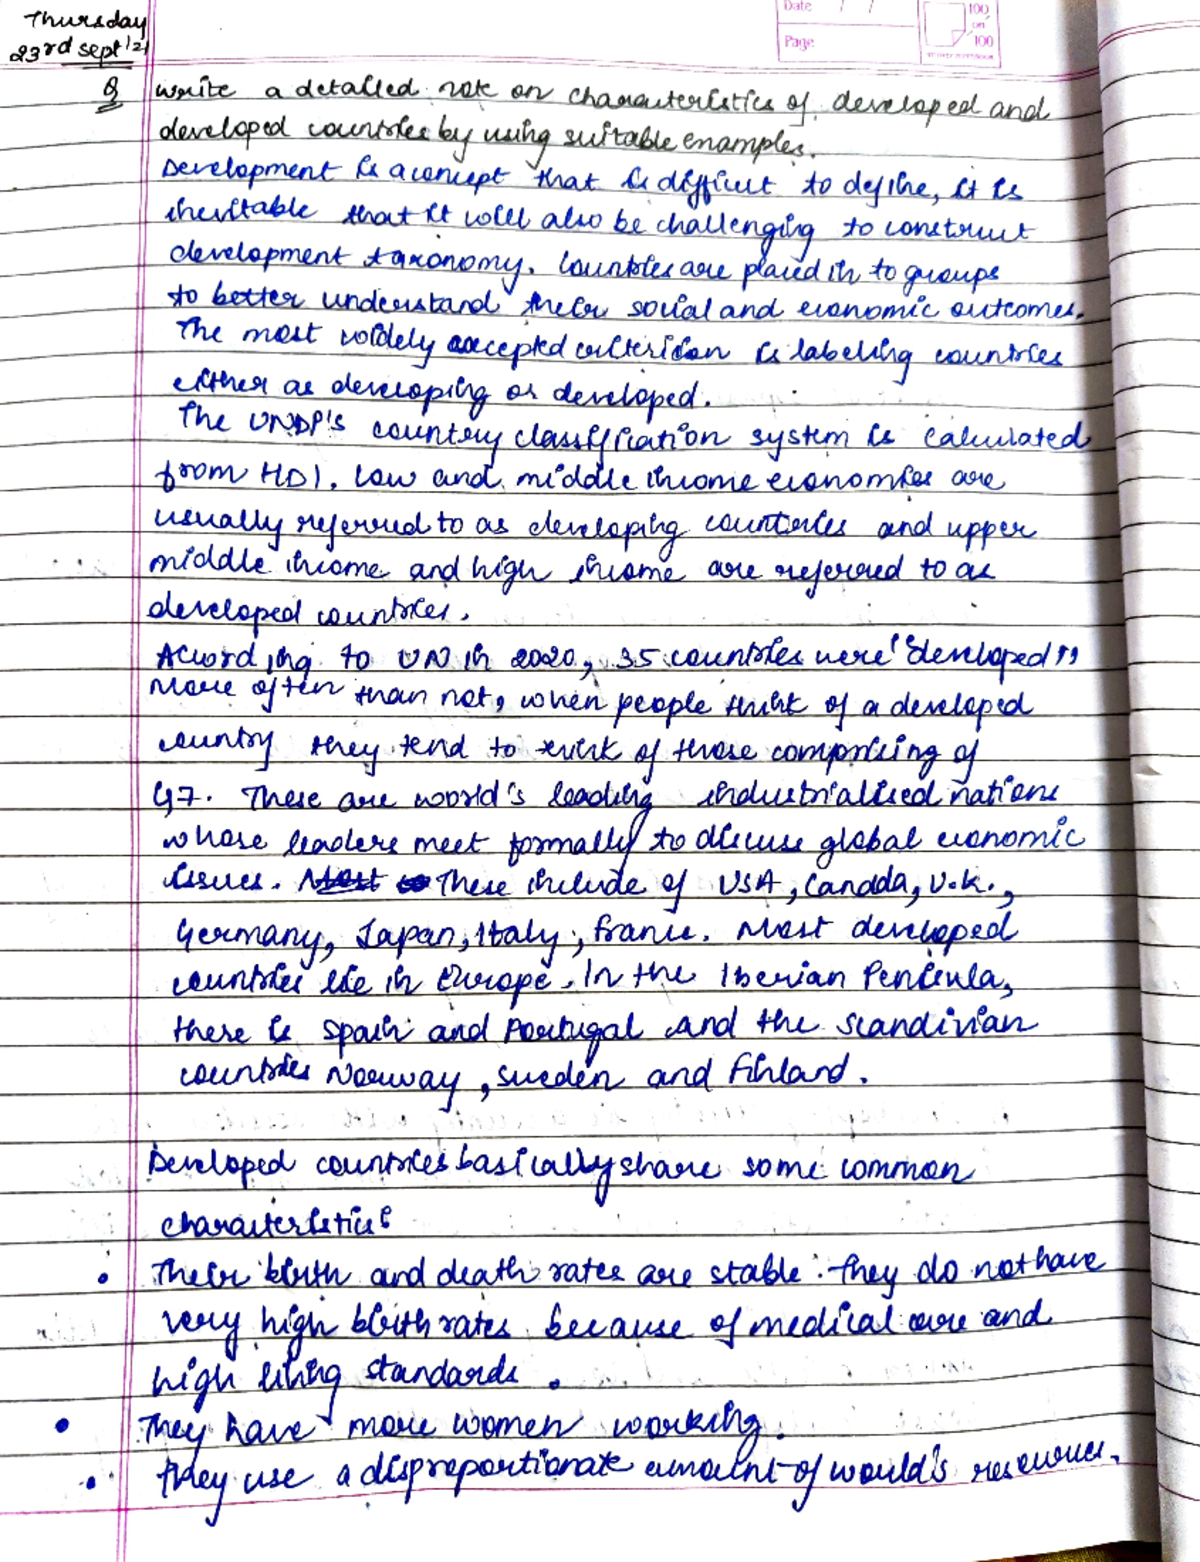 Thursday
23rd sept'21
Date / /
Page
100
on
100
Q write a detailed note on characteristics of developed and
developed countries by using suitable enamples.
Development is a concept that is difficult to define, it is
inevitable that it will also be challenging to construct
development taxonomy. Countries are placed in to groups
to better understand their social and economic outcomes.
The most widely accepted criterion is labeling countries
either as developing or developed.
The UNDP's country classification system is calculated
from HDI. Low and middle income economies are
usually referred to as developing countries and upper
middle income and high income are referred to as
developed countries.
According to UN in 2020, 35 countries were "developed"
More often than not, when people think of a developed
country they tend to think of those comprising of
G7. These are world's leading industrialised nations
whose leaders meet formally to discuss global economic
issues. Most These include of USA, Canada, U.K.,
Germany, Japan, Italy, france. Most developed
countries lie in Europe. In the Iberian Peninula,
there is Spain and Portugal and the scandivian
countries Norway, Sweden and Finland.
Developed countries basically share some common
characteristics
• Their birth and death rates are stable. They do not have
very high birth rates because of medical care and
high living standards.
• They have more women working.
• They use a disproportionate amount of would's resources.